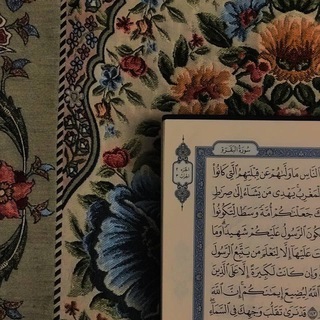 سُورَةُ البَقَرَةِ
النَّاسِ مَا وَلَّىٰهُمْ عَن قِبْلَتِهِمُ ٱلَّتِى كَانُوا۟
يَهْدِى مَن يَشَآءُ إِلَىٰ صِرَٰطٍ
جَعَلْنَٰكُمْ أُمَّةً وَسَطًا لِّتَكُونُوا۟
ٱلرَّسُولُ عَلَيْكُمْ شَهِيدًا وَمَا
عَلَيْهَآ إِلَّا لِنَعْلَمَ مَن يَتَّبِعُ ٱلرَّسُولَ
وَإِن كَانَتْ لَكَبِيرَةً إِلَّا عَلَى ٱلَّذِينَ
ٱللَّهُ لِيُضِيعَ إِيمَٰنَكُمْ إِنَّ ٱللَّهَ
قَدْ نَرَىٰ تَقَلُّبَ وَجْهِكَ فِى ٱلسَّمَآءِ